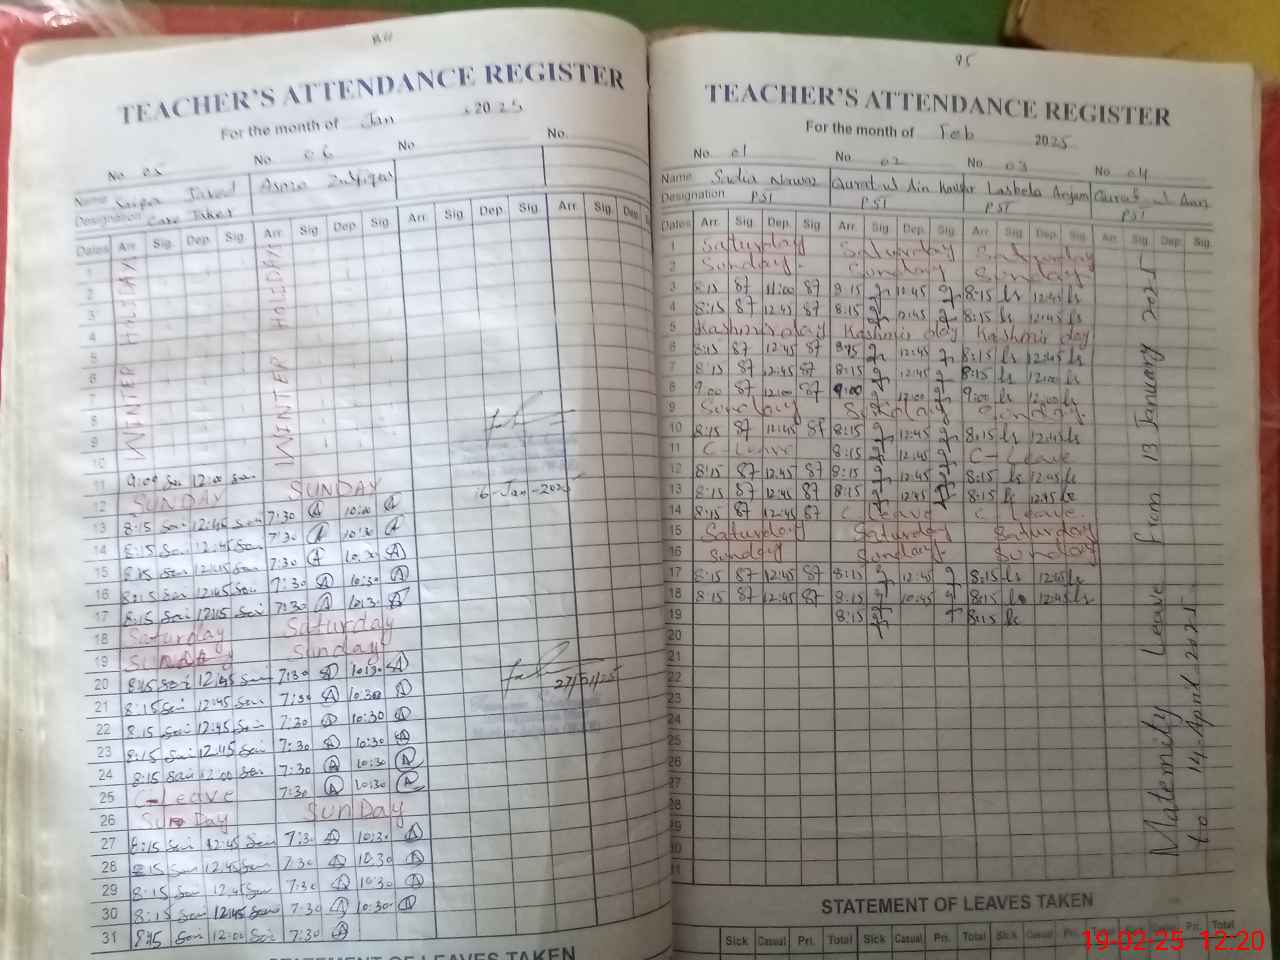 TEACHER'S ATTENDANCE REGISTER
For the month of Jan 2025
No. 05 No. 06 No. No.
Name Javed Asma Zulfiqar
Designation Care Taker
Dates Arr. Sig. Dep. Sig. Arr. Sig. Dep. Sig. Arr. Sig. Dep. Sig. Arr. Sig. Dep.
WINTER HOLIDAY WINTER HOLIDAY
1
2
3
4
5
6
7
8
9
10
11 9:00 12:00
12 SUNDAY SUNDAY
13 8:15 Sai 12:45 Sai 7:30 A 10:00 A
14 8:15 Sai 12:45 Sai 7:30 A 10:30 A
15 8:15 Sai 12:45 Sai 7:30 A 10:30 A
16 8:15 Sai 12:45 Sai 7:30 A 10:30 A
17 8:15 Sai 12:45 Sai 7:30 A 10:30 A
18 Saturday Saturday
19 SUNDAY Sunday
20 8:15 Sai 12:45 Sai 7:30 A 10:30 A
21 8:15 Sai 12:45 Sai 7:30 A 10:30 A
22 8:15 Sai 12:45 Sai 7:30 A 10:30 A
23 8:15 Sai 12:45 Sai 7:30 A 10:30 A
24 8:15 Sai 12:00 Sai 7:30 A 10:30 A
25 C-Leave 7:30 A 10:30 A
26 SunDay SunDay
27 8:15 Sai 12:45 Sai 7:30 A 10:30 A
28 8:15 Sai 12:45 Sai 7:30 A 10:30 A
29 8:15 Sai 12:45 Sai 7:30 A 10:30 A
30 8:15 Sai 12:45 Sai 7:30 A 10:30 A
31 8:15 Sai 12:00 Sai 7:30 A
16-Jan-2025
27/01/25
STATEMENT OF LEAVES TAKEN
95
TEACHER'S ATTENDANCE REGISTER
For the month of Feb 2025
No. 01 No. 02 No. 03 No. 04
Name Sadia Nawaz Qurat ul Ain Lasbela Anjam Qurat ul Aan
Designation PST PST PST PST
Dates Arr. Sig. Dep. Sig. Arr. Sig. Dep. Sig. Arr. Sig. Dep. Sig. Arr. Sig. Dep. Sig.
1 Saturday Saturday Saturday
2 Sunday Sunday Sunday
3 8:15 87 11:00 87 8:15 12:45 8:15 ls 12:45 ls
4 8:15 87 12:45 87 8:15 12:45 8:15 ls 12:45 ls
5 Kashmir day Kashmir day Kashmir day
6 8:15 87 12:45 87 8:15 12:45 8:15 ls 12:45 ls
7 8:15 87 12:45 87 8:15 12:45 8:15 ls 12:00 ls
8 9:00 87 12:00 87 9:00 12:00 9:00 ls 12:00 ls
9 Sunday Sunday Sunday
10 8:15 87 12:45 87 8:15 12:45 8:15 ls 12:45 ls
11 C-Leave 8:15 12:45 C-Leave
12 8:15 87 12:45 87 8:15 12:45 8:15 ls 12:45 ls
13 8:15 87 12:45 87 8:15 12:45 8:15 ls 12:45 ls
14 8:15 87 12:45 87 C Leave C Leave
15 Saturday Saturday Saturday
16 Sunday Sunday Sunday
17 8:15 87 12:45 87 8:15 12:45 8:15 ls 12:45 ls
18 8:15 87 12:45 87 8:15 12:45 8:15 ls 12:45 ls
19 8:15 8:15 ls
20
21
22
23
24
25
26
27
28
29
30
31
Maternity Leave from 13 January 2025
to 14 April 2025
STATEMENT OF LEAVES TAKEN
Sick Casual Pri. Total Sick Casual Pri. Total Sick Casual Pri. Total Sick Casual Pri. Total
19-02-25 12:20